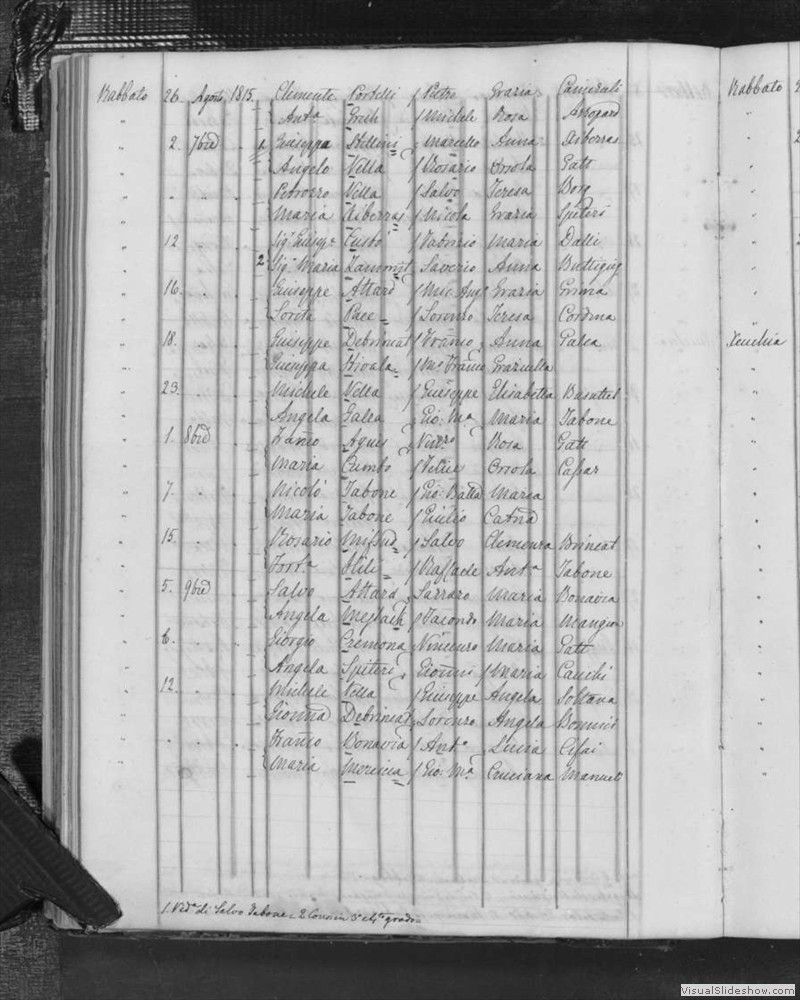 Rabbato 26 Agosto 1815 Clemente Portelli Pietro Grazia Camenuli
Ant.a Grech Michele Rosa Apogard
2 7bre 1 Giuseppa Stellini Marcello Anna Asberras
Angelo Vella Rosario Orsola Gatt
Petronzo Vella Salvo Teresa Borg
Maria Asberras Nicola Grazia Spiteri
12 Sig.r Giusepp.e Custò Fabrizio Maria Dalli
2 Sig.a Maria Zammit Saverio Anna Buttigieg
16 Giuseppe Attard Mic. Ang.o Grazia Grima
Loreta Pace Lorenzo Teresa Cordina
18 Giuseppe Debrincat Franco Anna Galea
Giuseppa Hivala M.o Franco Graziella
23 Michele Vella Giuseppe Elisabetta Busuttil
Angela Galea Gio: M.a Maria Tabone
1 8bre Franco Agius Vinc.o Rosa Gatt
Maria Cumbo Felice Orsola Capar
7 Nicolò Tabone Gio: Batta Maria
Maria Tabone Giulio Catna
15 Rosario Mifsud Salvo Clemenza Brincat
Raffaele Ant.a Tabone
5 9bre Salvo Attard Lazzaro Maria Bonavia
Angela Giacondo Maria Mangion
6 Giorgio Cremona Vincenzo Maria Gatt
Angela Spiteri Gionni Maria Cauchi
12 Michele Vella Giuseppe Angela Soltana
Gionna Debrincat Lorenzo Angela Bonnici
Franco Bonavia Ant.o Lucia Cefai
Maria Gio: M.a Cruciana Manueli
1. Ved.a di Salvo Tabone 2 Consan 3° e 4to grado
Rabbato
Xeuchia
VisualSlideshow.com